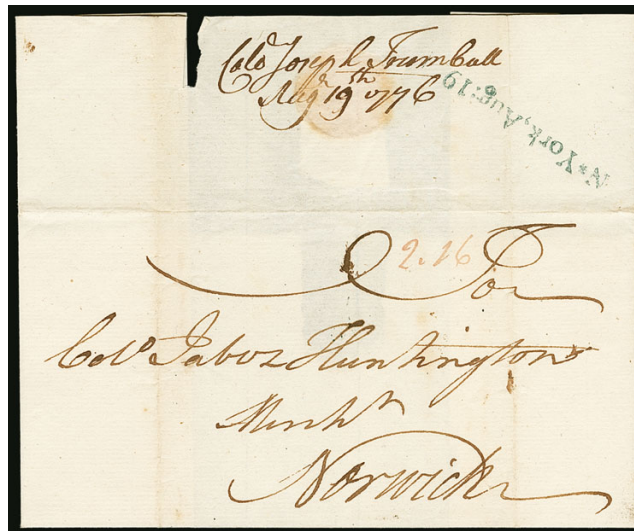 Colº Joseph Trumbull
Augt 19th 1776
N*York, Aug:19
2.16
For
Colº Jabez Huntington
Mercht
Norwich